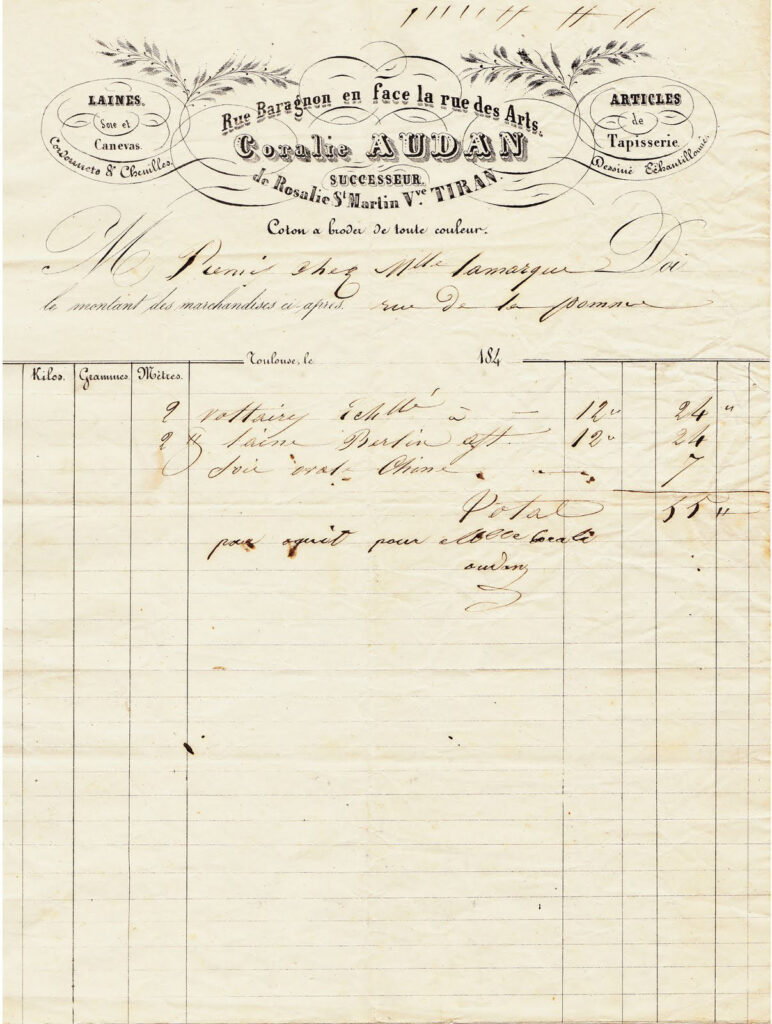 LAINES.
Soie et
Canevas.
Cordonnets & Chenilles.
Rue Baragnon en face la rue des Arts.
Coralie AUDAN
SUCCESSEUR
de Rosalie St Martin Vve. TIRAN.
ARTICLES
de
Tapisserie.
Dessiné Echantillonné.
Coton a broder de toute couleur.
M Remi chez Mlle lamarque Doi
le montant des marchandises ci-après. rue de la pomme
Toulouse, le 184
Kilos. Grammes Mètres.
2 voltaire Echllé à — 12" 24 "
2 " laine Berlin 12" 24
Soie ovale Chine 7
Total 55 "
pour aquit pour Mlle Corali
audan